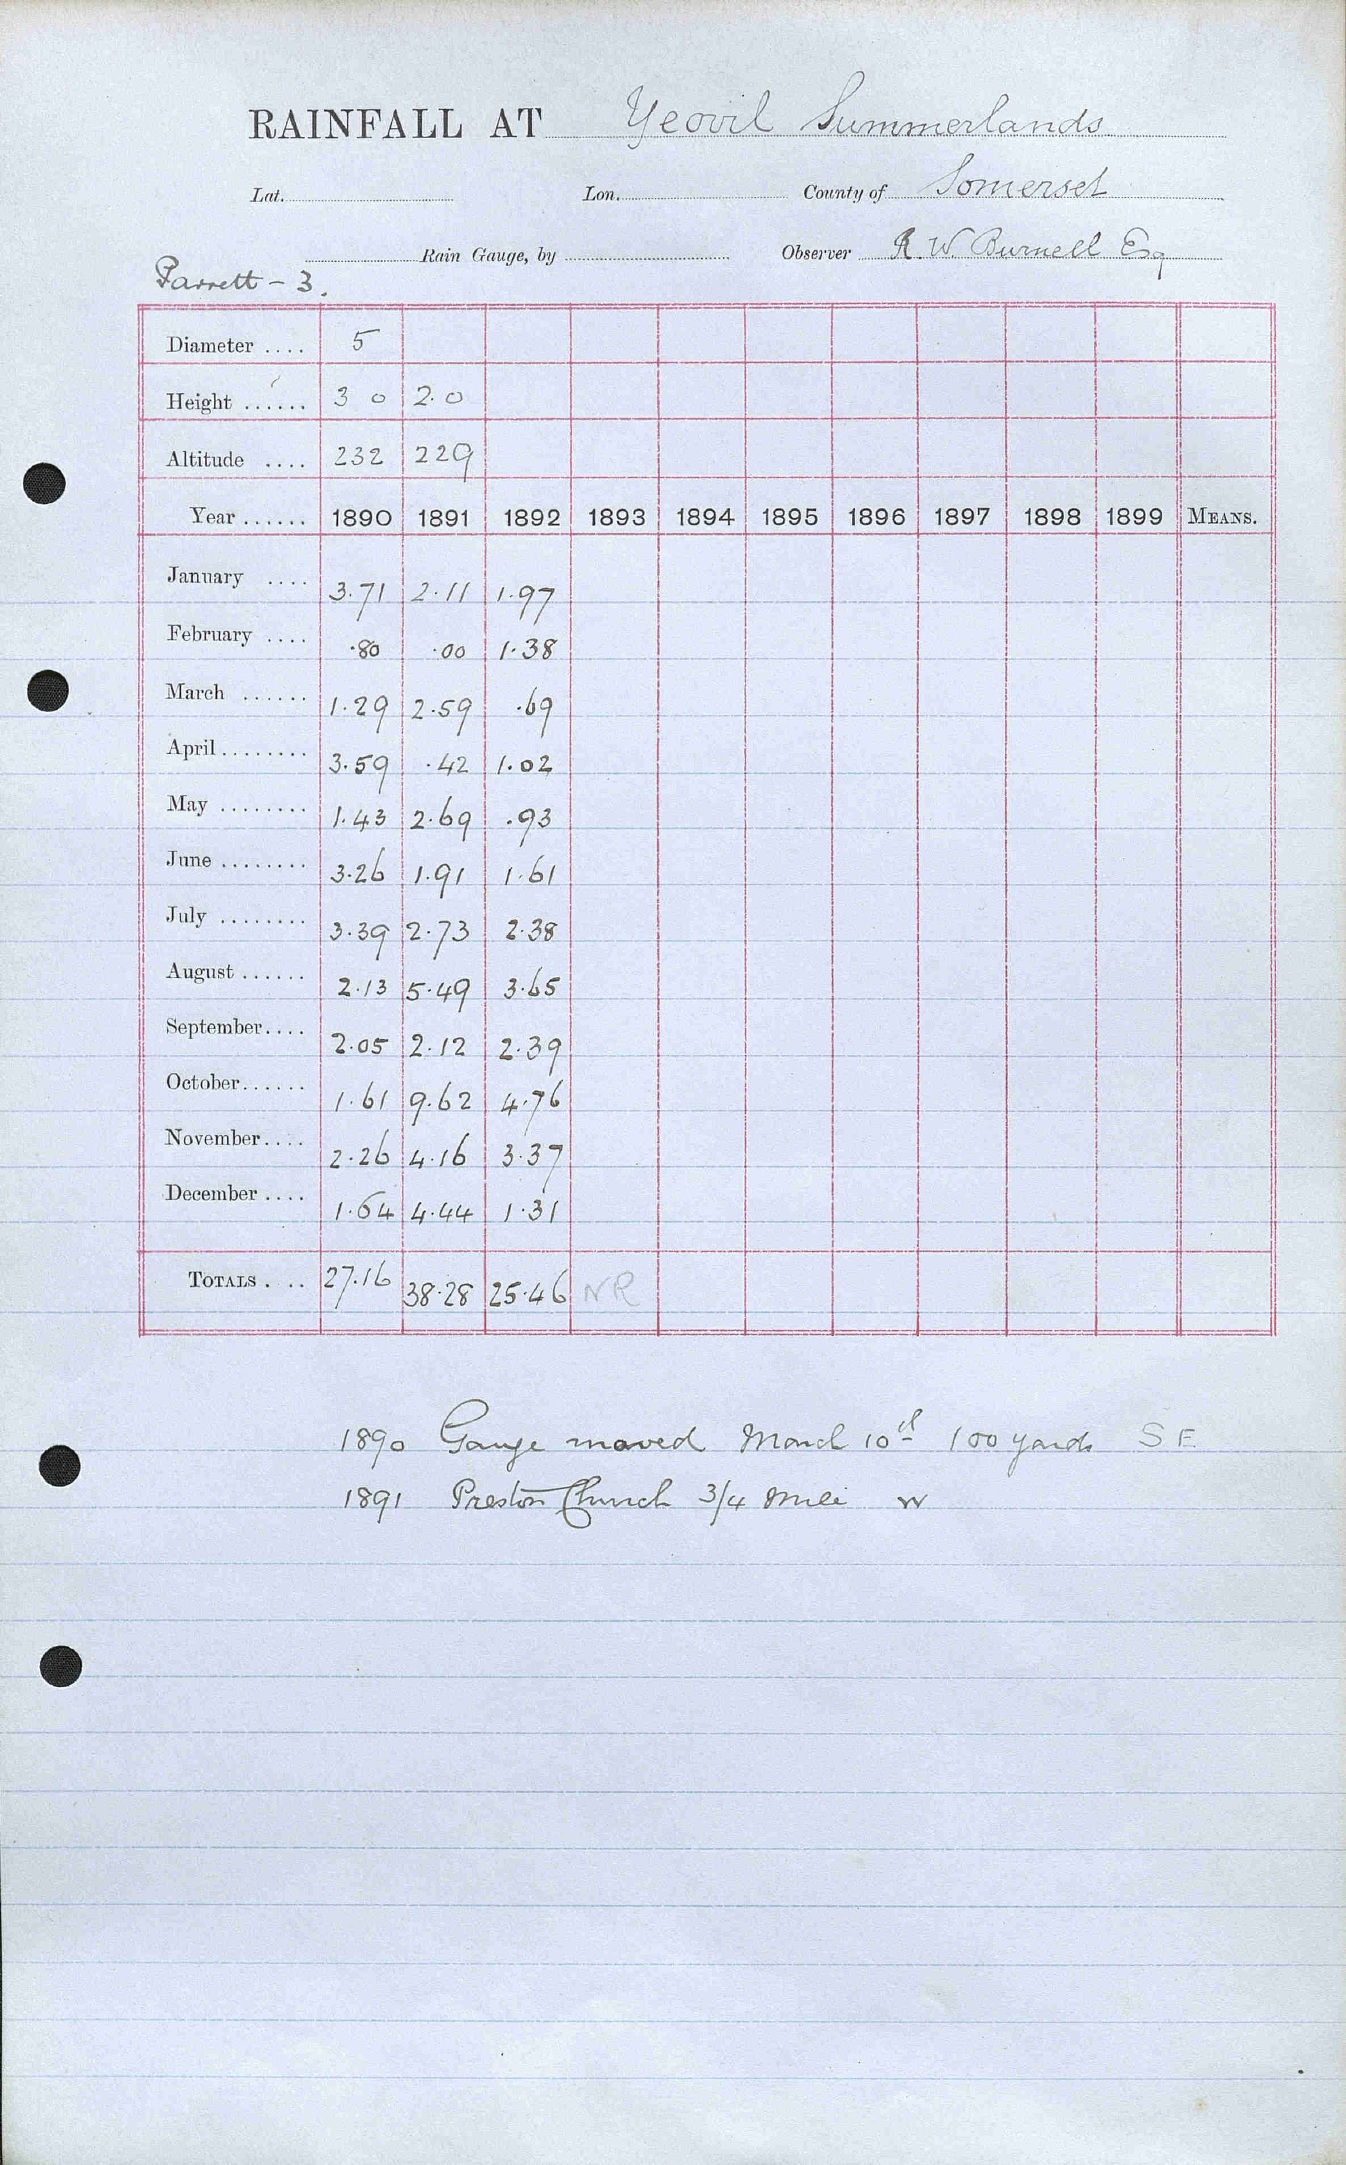 RAINFALL AT Yeovil Summerlands
Lat. Lon. County of Somerset
Rain Gauge, by Observer R. W. Burnell Esq
Parrett - 3.
Diameter .... 5
Height ...... 3 0 2.0
Altitude .... 232 229
Year ...... 1890 1891 1892 1893 1894 1895 1896 1897 1898 1899 MEANS.
January .... 3.71 2.11 1.97
February .... .80 .00 1.38
March ...... 1.29 2.59 .69
April ........ 3.59 .42 1.02
May ........ 1.43 2.69 .93
June ........ 3.26 1.91 1.61
July ........ 3.39 2.73 2.38
August ...... 2.13 5.49 3.65
September.... 2.05 2.12 2.39
October...... 1.61 9.62 4.76
November.... 2.26 4.16 3.37
December .... 1.64 4.44 1.31
TOTALS . .. 27.16 38.28 25.46 NR
1890 Gauge moved March 10th 100 yards S E
1891 Preston Church 3/4 mile W